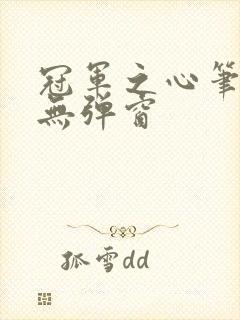 冠軍之心筆
無彈窗
孤雪dd